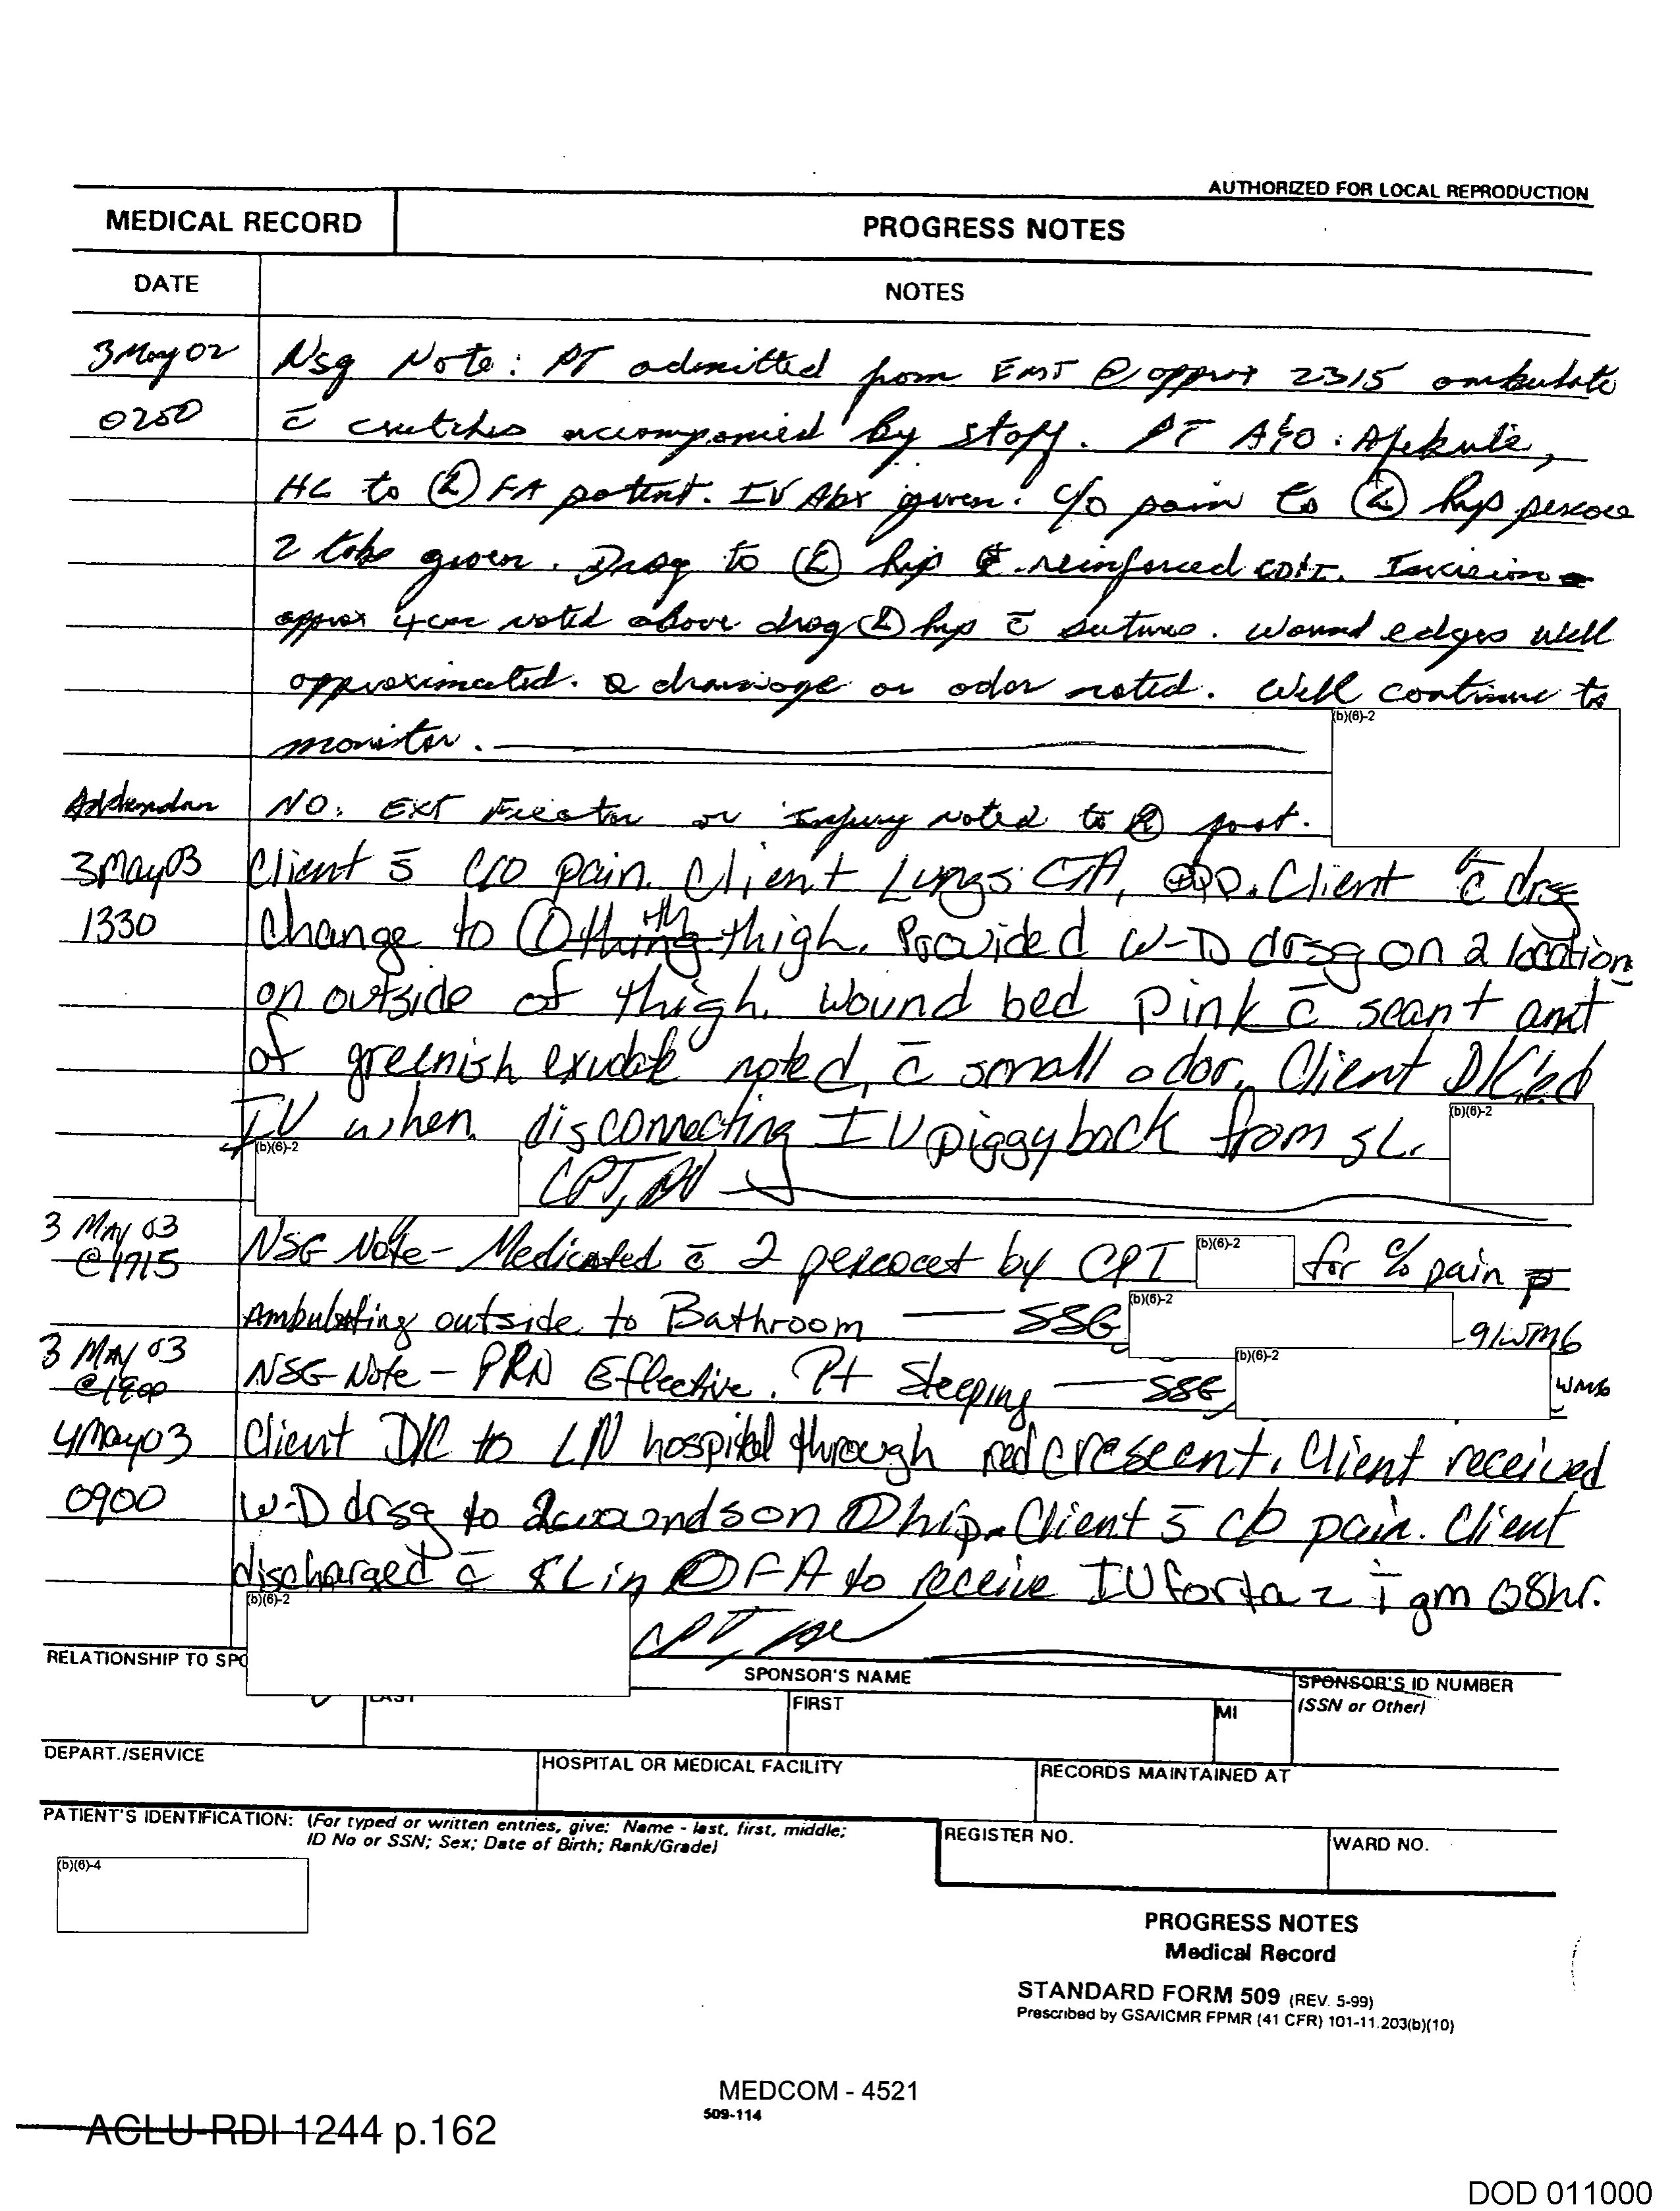 AUTHORIZED FOR LOCAL REPRODUCTION
MEDICAL RECORD
PROGRESS NOTES
DATE
NOTES
3 May 02 Nsg Note: PT admitted from EMT @ approx 2315 ambulate
0250 c̄ crutches accompanied by staff. PT A&O: Afebrile,
HL to Ⓛ FA patent. IV Abx given. c/o pain to Ⓛ hip
2 tabs given. Drsg to Ⓛ hip reinforced Incision
approx 4cm noted above drsg Ⓛ hip c̄ sutures. Wound edges well
approximated. drainage or odor noted. Will continue to
(b)(6)-2
monitor.
NO. EXT or injury noted to
3 May 03 Client s̄ c/o pain. Client Lungs CTA, Client c̄ drsg
1330 change to Ⓛ thigh. Provided W-D drsg on 2 location
on outside of thigh. Wound bed pink c̄ scant amt
of greenish exudate noted, c̄ small odor. Client D/C'ed
IV when disconnecting IV piggyback from SL. (b)(6)-2
(b)(6)-2 CPT, RN
3 MAY 03 NSG Note - Medicated c̄ 2 percocet by CPT (b)(6)-2 for c/o pain p̄
@1715
Ambulating outside to Bathroom — SSG (b)(6)-2 91WM6
3 MAY 03 NSG Note - PRN Effective. Pt Sleeping — SSG (b)(6)-2 WM6
4 May 03 Client D/C to LN hospital through red crescent. Client received
0900 W-D drsg to 2 wounds on Ⓛ hip. Client s̄ c/o pain. Client
discharged c̄ SL in FA to receive IV fortaz ī gm Q8hr.
(b)(6)-2 CPT, RN
RELATIONSHIP TO SPO
SPONSOR'S NAME
SPONSOR'S ID NUMBER
(SSN or Other)
LAST
FIRST
MI
DEPART./SERVICE
HOSPITAL OR MEDICAL FACILITY
RECORDS MAINTAINED AT
PATIENT'S IDENTIFICATION: (For typed or written entries, give: Name - last, first, middle;
ID No or SSN; Sex; Date of Birth; Rank/Grade)
REGISTER NO.
WARD NO.
(b)(6)-4
PROGRESS NOTES
Medical Record
STANDARD FORM 509 (REV. 5-99)
Prescribed by GSA/ICMR FPMR (41 CFR) 101-11.203(b)(10)
MEDCOM - 4521
509-114
ACLU-RDI 1244 p.162
DOD 011000